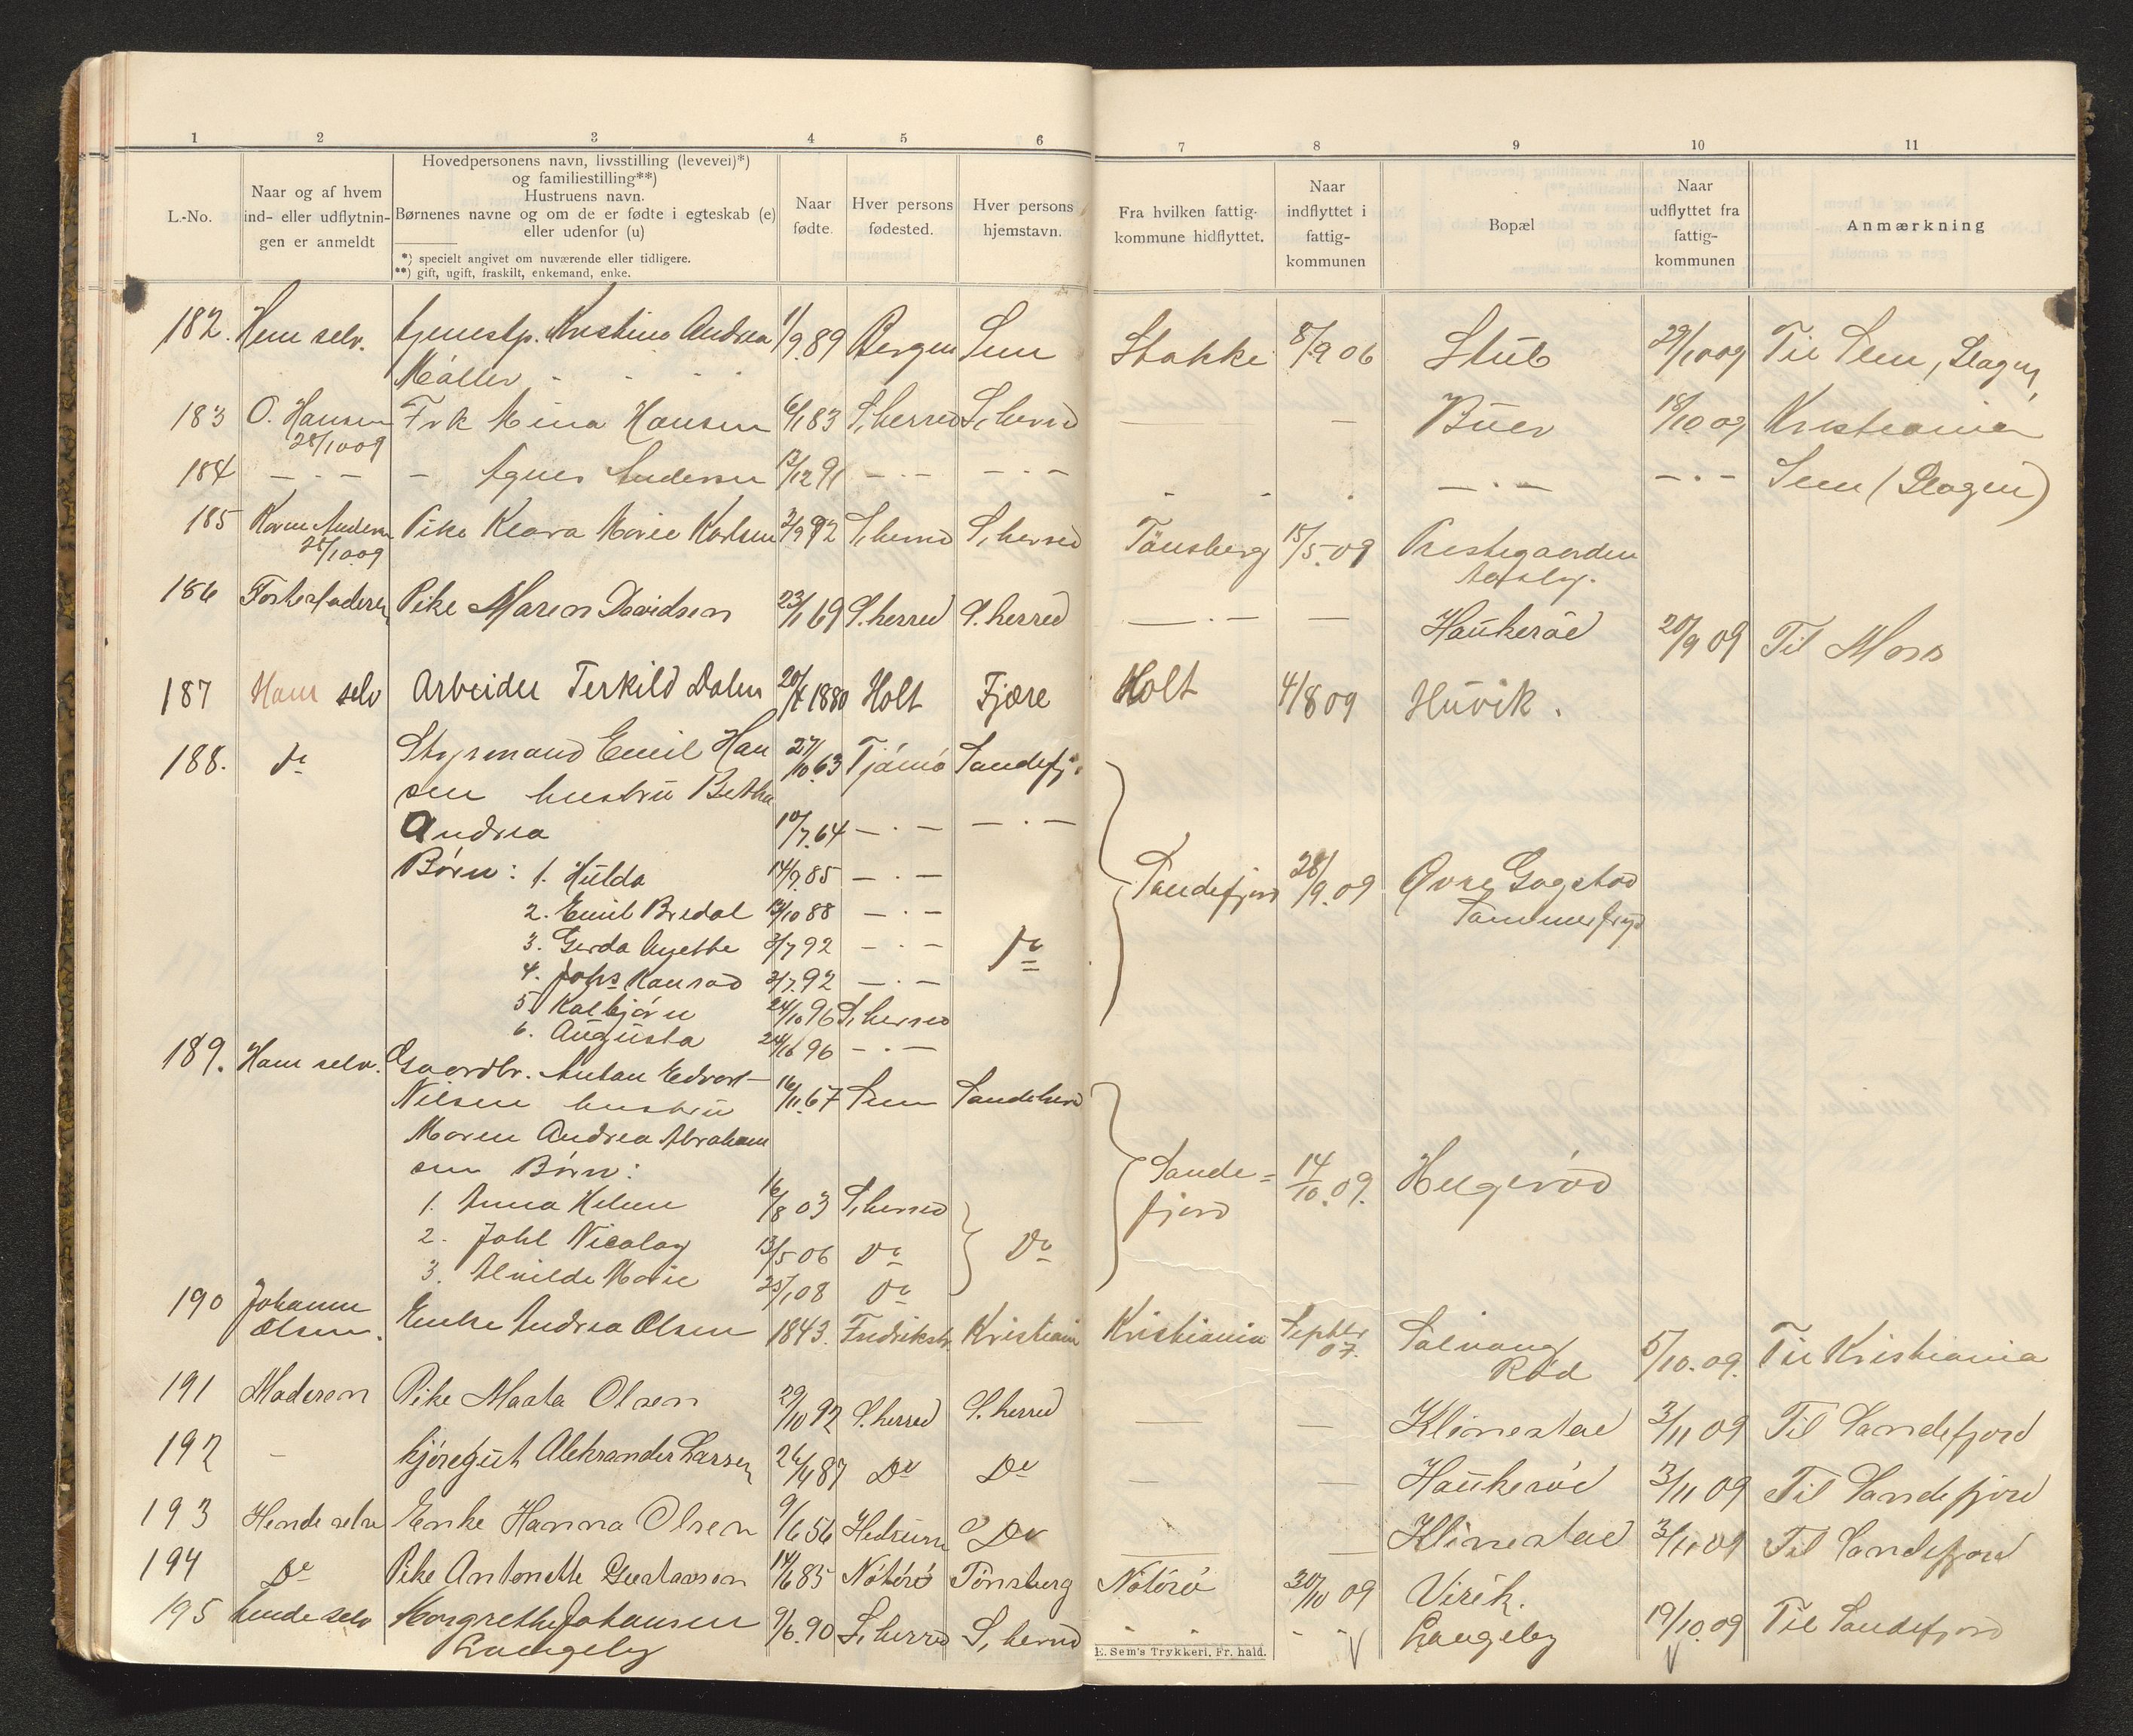 1 2 3 4 5 6 7 8 9 10 11
L.-No.
Naar og af hvem
ind- eller udflytnin-
gen er anmeldt
Hovedpersonens navn, livsstilling (levevei)*)
og familiestilling**)
Hustruens navn.
Børnenes navne og om de er fødte i egteskab (e)
eller udenfor (u)
*) specielt angivet om nuværende eller tidligere.
**) gift, ugift, fraskilt, enkemand, enke.
Naar
fødte.
Hver persons
fødested.
Hver persons
hjemstavn.
Fra hvilken fattig-
kommune hidflyttet.
Naar
indflyttet i
fattig-
kommunen
Bopæl
Naar
udflyttet fra
fattig-
kommunen
Anmærkning
182. selv. tjenestp. Andrea 1/9 89 Bergen Sem Stokke 8/9 06 Stub 29/10 09 Til Sem, Slagen
Møller
183 O. Hansen Frk Mina Hansen 6/1 83 S. herred S. herred — — Buer 18/10 09 Kristiania
28/10 09
184 — . — - Agnes Andersen 12/12 91 — . — — . — — . — — . — Sem (Slagen)
185 Karen Andersen Pike Klara Marie Karlsen 2/9 92 S. herred S. herred Tønsberg 15/5 09 Prestegaarden
28/10 09
186 Pike Maren Davidsen 23/1 69 S. herred S. herred — . — — Haukerød 20/9 09 Til Moss
187 Ham selv Arbeider Terkild Dalen 20/4 1880 Holt Fjære Holt 4/8 09 Huvik.
188. Do Styrmand Emil Han 27/10 63 Tjømø Sandefj.
sen hustru Betha
Andrea 10/7 64 — . — — . —
Børn: 1. Hulda 14/9 85 — . — Sandefjord 28/9. 09 Øvre Gogstad
2. Emil Bredal 12/10 88 — . — Sommerfryd
3. Gerda Anette 2/7 92 — . — Do
4. Johs Konrad 2/7 92 — . —
5 Kolbjørn 24/10 96 S. herred
6. Augusta 24/10 96 — . —
189. Ham selv. Gaardbr. Anton Edvart 16/11 67 Sem Sandeherd
Nilsen hustru
Maren Andrea Abraham
sen Børn: Sande- 14/10. 09. Helgerød
1. Anna Helene 16/8 03 S. herred fjord
2. Johl Nicolay 13/5 06 Do Do
3. Alvilde Marie 25/1 08 Do
190 Johanne Enke Andrea Olsen 1843. Fredrikst. Kristiania Kristiania Septbr Solvang 5/10. 09. Til Kristiania
Olsen. 07. Rød
191 Moderen Pike Marta Olsen 29/10 92 S. herred S. herred — — Klinestad 3/11 09 Til Sandefjord
192 - kjøregut Aleksander Larsen 26/4 87 Do Do — — Haukerød 3/11 09 Til Sandefjord
193 Hende selv Enke Hanna Olsen 9/6 56 Hedrum Do — — Klinestad 3/11 09 Til Sandefjord
194 Do Pike Antonette Gustavsen 14/6 85 Nøterø Tønsberg Nøterø 30/10 09 Virik.
195 hende selv Margrethe Johansen 9/6. 90 S. herred S. herred - - - - Langeby 19/10. 09 Til Sandefjord
Langeby
E. Sem's Trykkeri, Fr. hald.